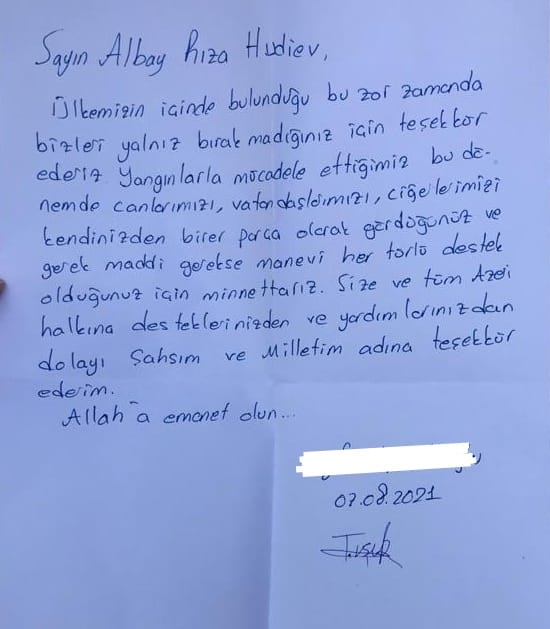 Sayın Albay Rıza Hudiev,
Ülkemizin içinde bulunduğu bu zor zamanda
bizleri yalnız bırakmadığınız için teşekkür
ederiz Yangınlarla mücadele ettiğimiz bu dö-
nemde canlarımızı, vatandaşlarımızı, ciğerlerimizi
kendinizden birer parça olarak gördüğünüz ve
gerek maddi gerekse manevi her türlü destek
olduğunuz için minnettarız. Size ve tüm Azeri
halkına desteklerinizden ve yardımlarınızdan
dolayı Şahsım ve Milletim adına teşekkür
ederim.
Allah'a emanet olun...
07.08.2021